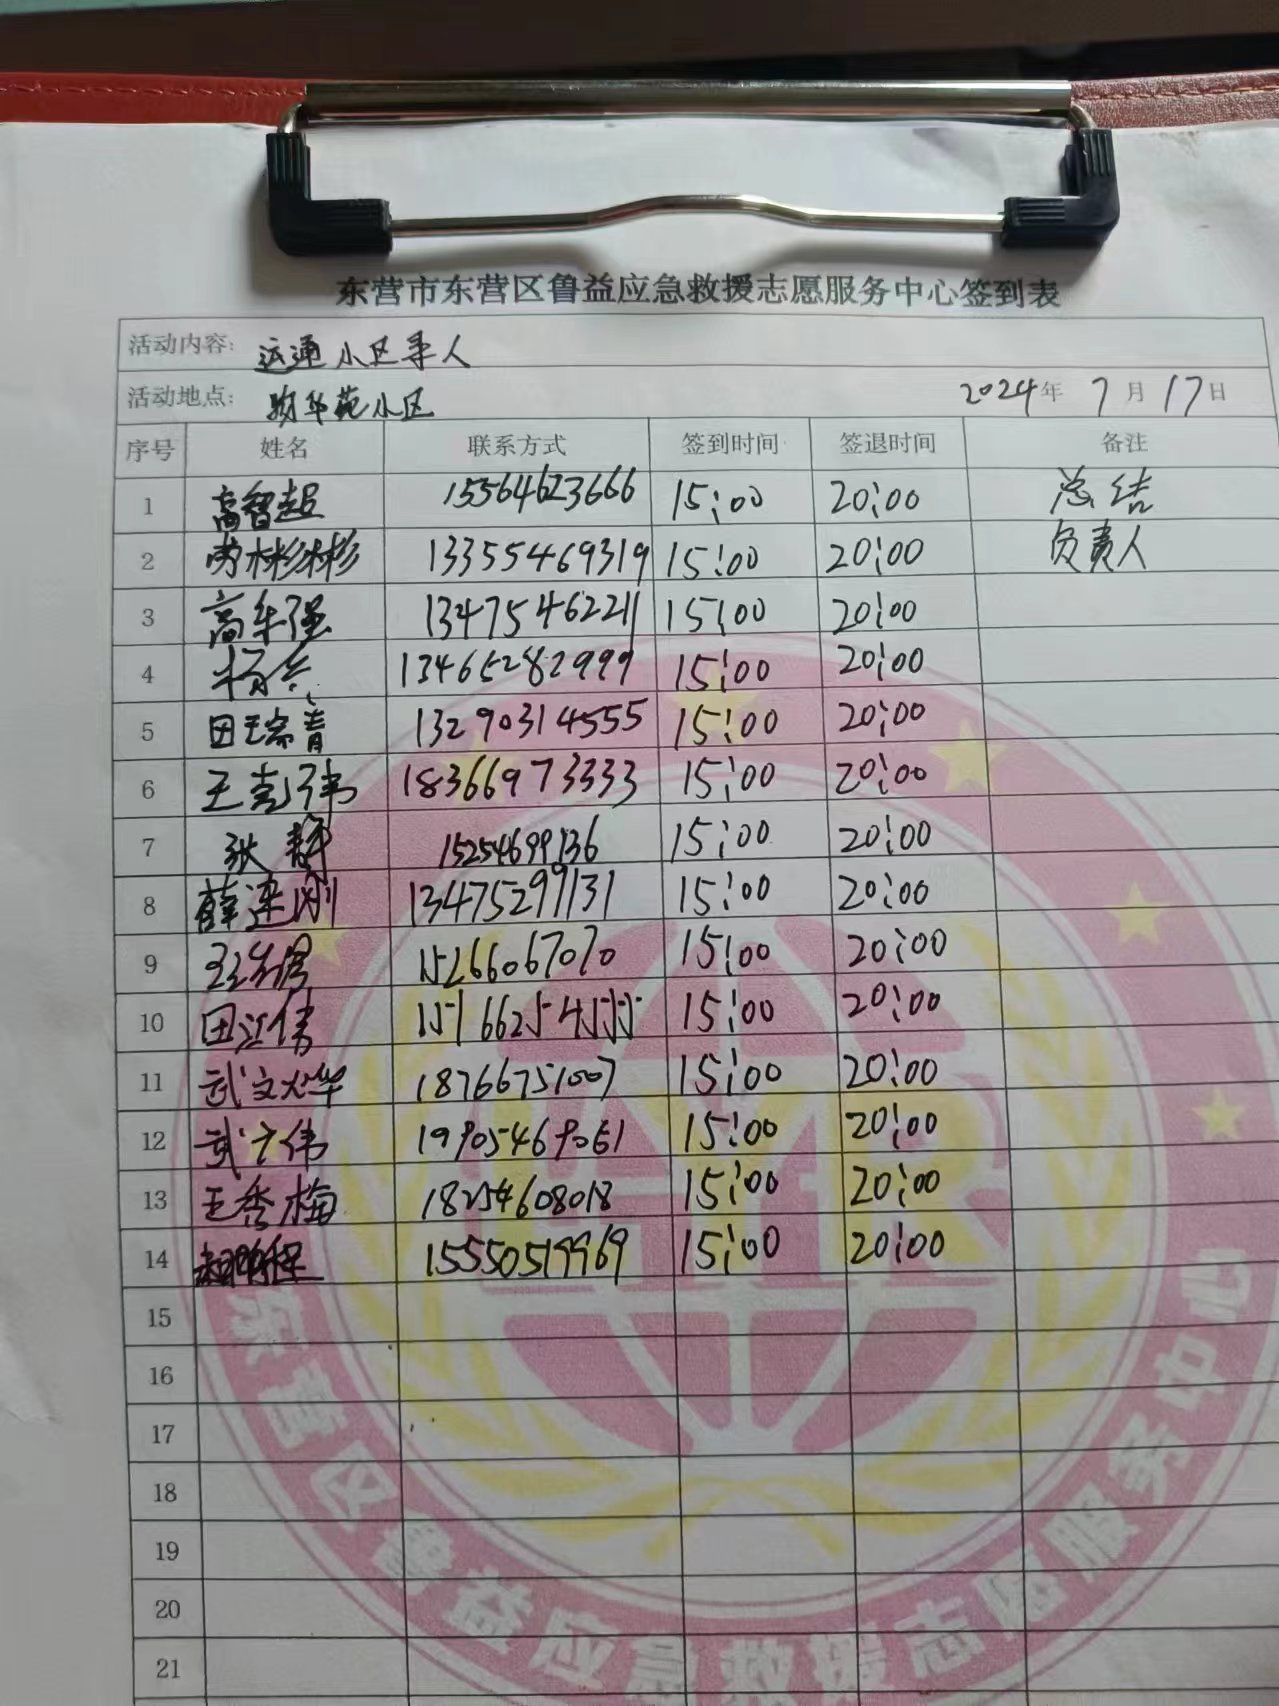 东营市东营区鲁益应急救援志愿服务中心签到表
活动内容: 运通小区寻人
活动地点: 物华苑小区 2024年 7月 17日
序号 姓名 联系方式 签到时间 签退时间 备注
1 高智超 15564623666 15:00 20:00 总结
2 苏彬彬 13355469319 15:00 20:00 负责人
3 高军强 13475462211 15:00 20:00
4 杨兵 13465282999 15:00 20:00
5 田瑞青 13290314555 15:00 20:00
6 王克伟 18366973333 15:00 20:00
7 张静 15254699136 15:00 20:00
8 薛建刚 13475299131 15:00 20:00
9 15266067070 15:00 20:00
10 田江伟 15166254555 15:00 20:00
11 武文烨 18766751007 15:00 20:00
12 武立伟 19905469061 15:00 20:00
13 王秀梅 18254608018 15:00 20:00
14 15550519969 15:00 20:00
15
16
17
18
19
20
21
东营区鲁益应急救援志愿服务中心